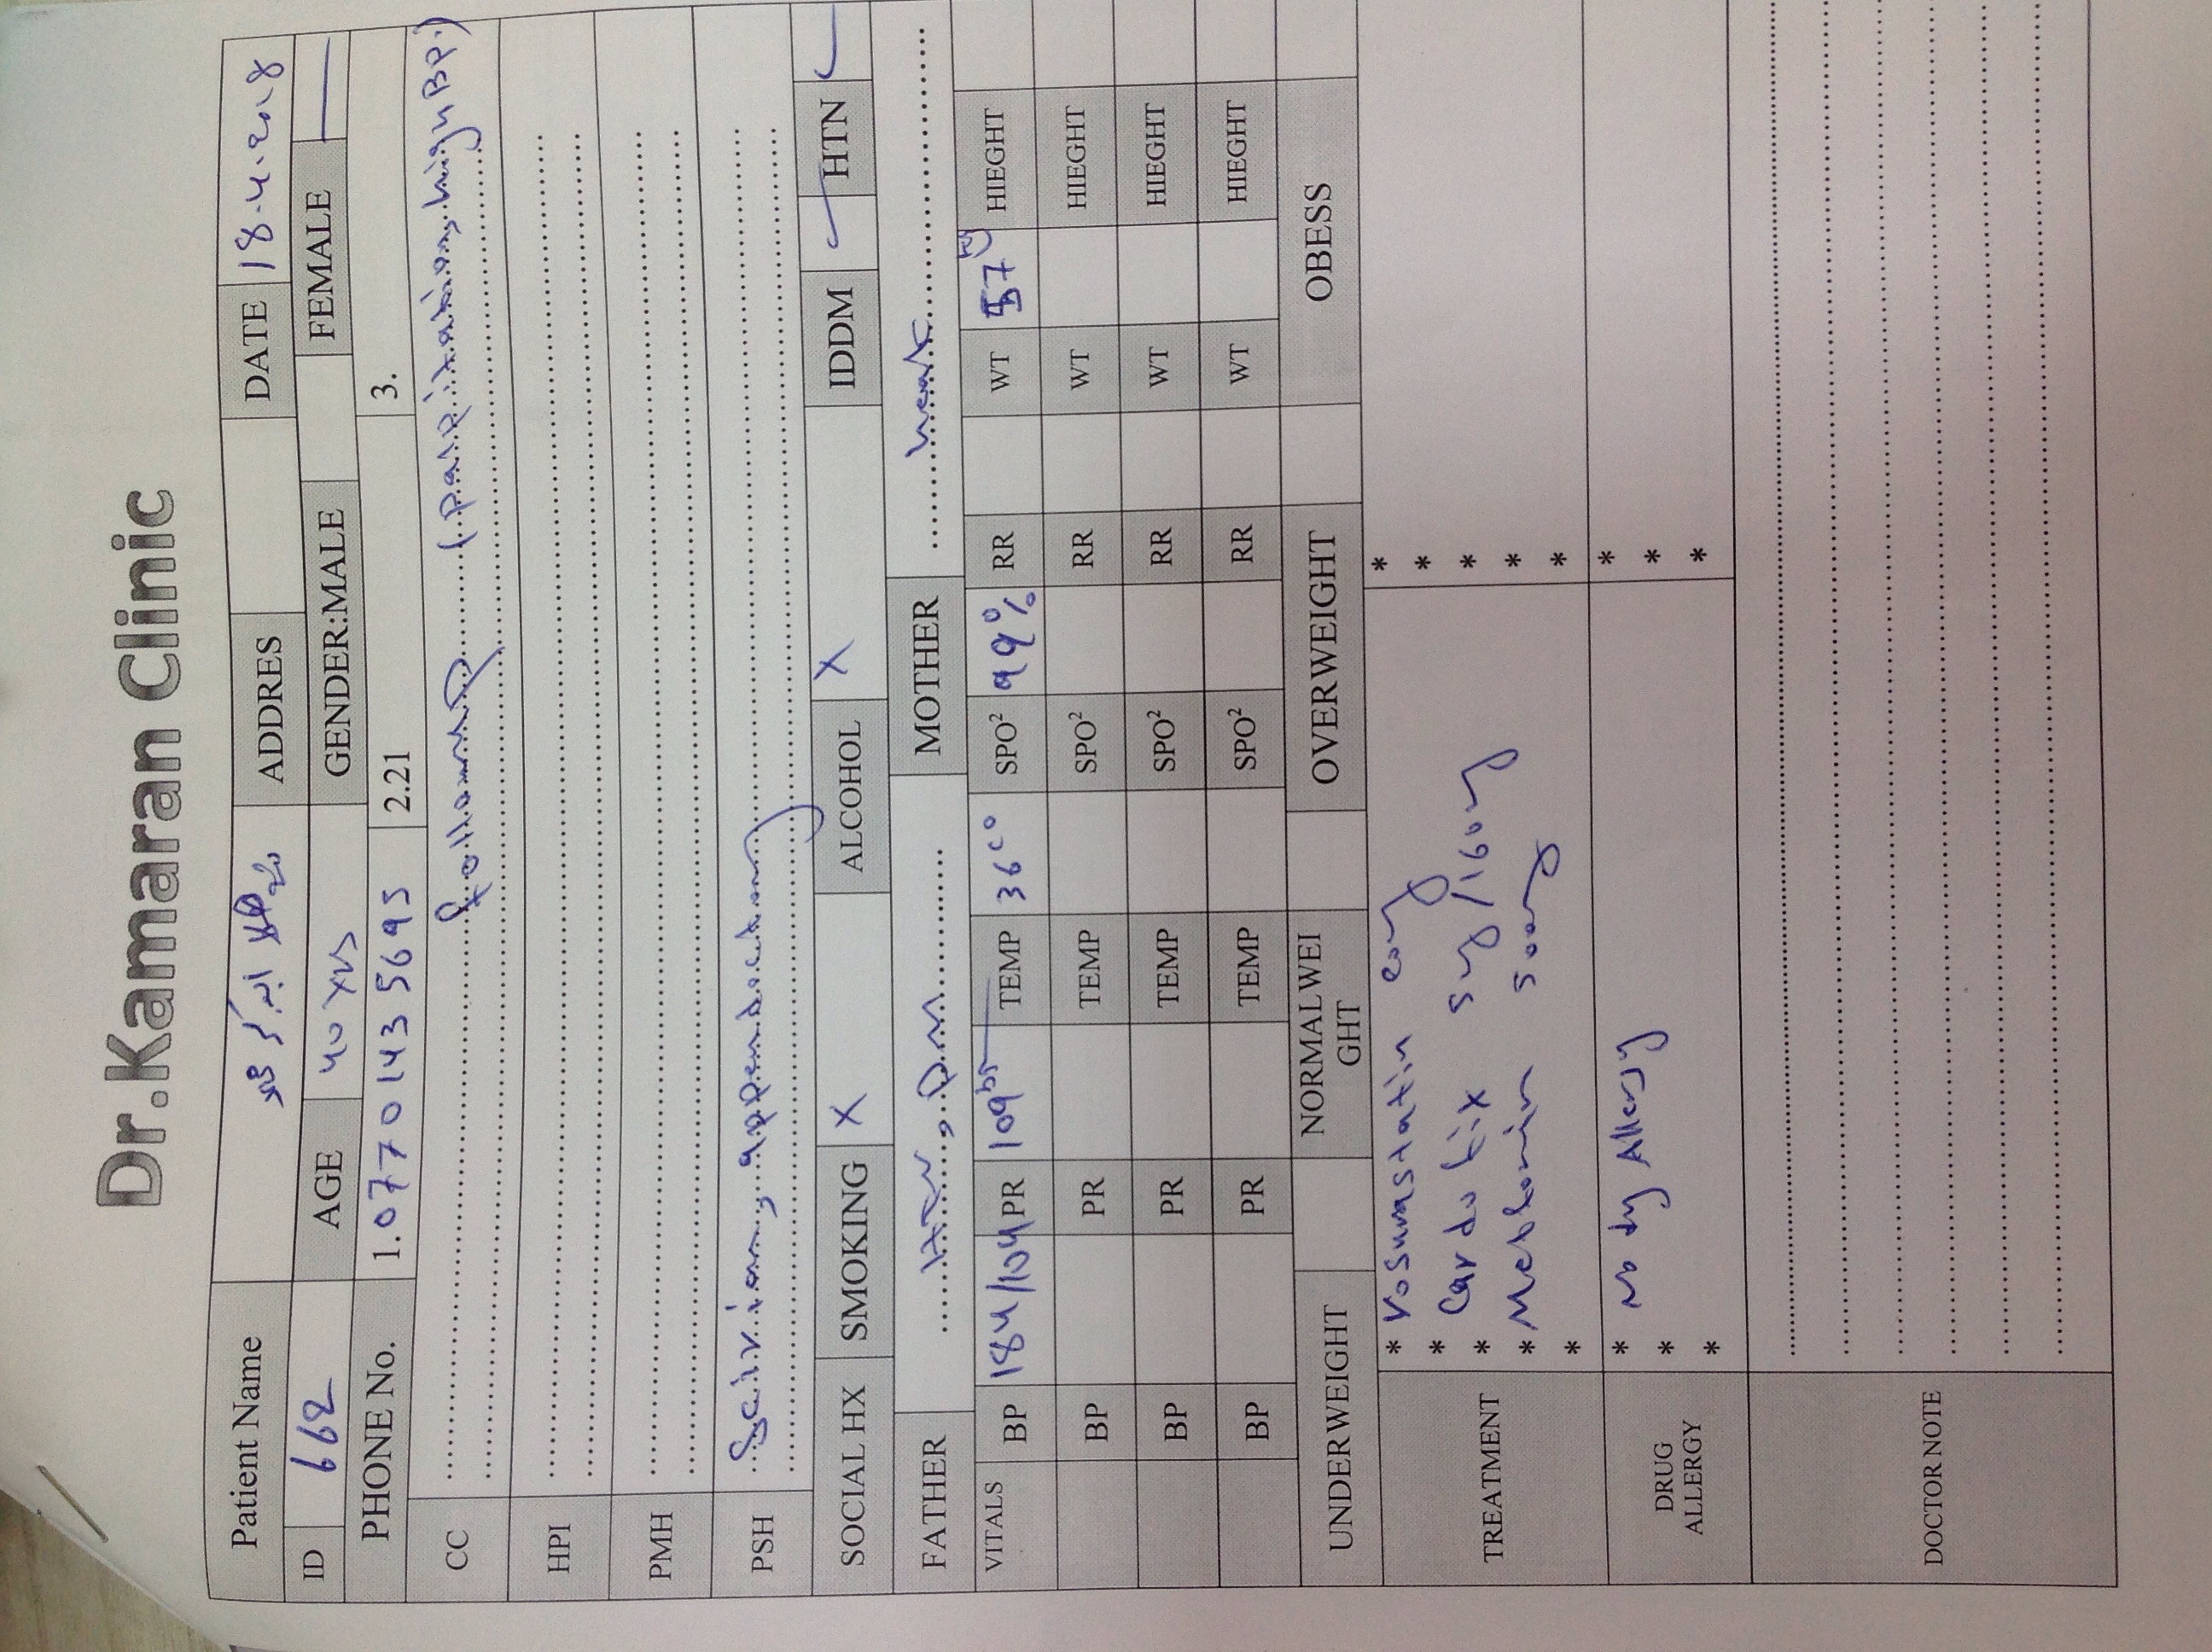 Dr.Kamaran Clinic
Patient Name ADDRES DATE 18-4-2018
ID 662 AGE 40 yrs GENDER:MALE FEMALE
PHONE No. 1.0770 143 5695 2.21 3.
CC follow up (palpitation, high BP)
HPI
PMH
PSH appendectomy
SOCIAL HX SMOKING X ALCOHOL X IDDM HTN
FATHER HTN, DM MOTHER heart
VITALS BP 184/104 PR 109 TEMP 36 C° SPO² 99% RR WT 57 kg HIEGHT
BP PR TEMP SPO² RR WT HIEGHT
BP PR TEMP SPO² RR WT HIEGHT
BP PR TEMP SPO² RR WT HIEGHT
UNDERWEIGHT NORMALWEI
GHT OVERWEIGHT OBESS
TREATMENT
* Rosuvastatin *
* Cardofix 5mg/160mg *
* *
* Metformin 500mg *
* *
DRUG
ALLERGY
* No Allergy *
* *
* *
DOCTOR NOTE